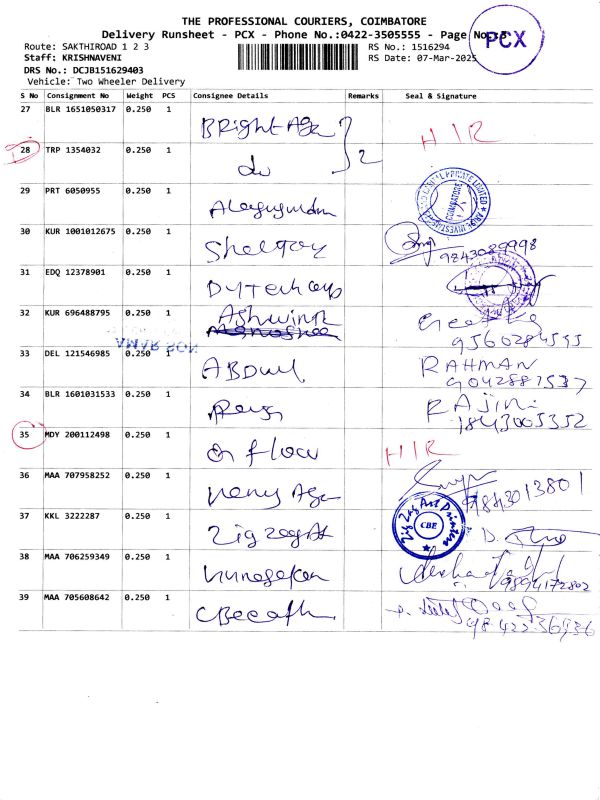 THE PROFESSIONAL COURIERS, COIMBATORE
Delivery Runsheet - PCX - Phone No.:0422-3505555 - Page No.:3
PCX
Route: SAKTHIROAD 1 2 3
RS No.: 1516294
Staff: KRISHNAVENI
RS Date: 07-Mar-2025
DRS No.: DCJB151629403
Vehicle: Two Wheeler Delivery
S No Consignment No Weight PCS Consignee Details Remarks Seal & Signature
27 BLR 1651050317 0.250 1 BRight Age HIR
28 TRP 1354032 0.250 1 do 2
29 PRT 6050955 0.250 1
COIMBATORE
30 KUR 1001012675 0.250 1 9843089998
31 EDQ 12378901 0.250 1
32 KUR 696488795 0.250 1 Ashwin
9560284555
AMAR SON
33 DEL 121546985 0.250 1 ABDUL RAHMAN
9042887537
34 BLR 1601031533 0.250 1 RAJINI
9843005352
35 MDY 200112498 0.250 1 on flow HIR
36 MAA 707958252 0.250 1 9843013801
37 KKL 3222287 0.250 1 Zig zag Art
Zig Zag Art Printers
CBE
38 MAA 706259349 0.250 1 9894172802
39 MAA 705608642 0.250 1 98422 36936